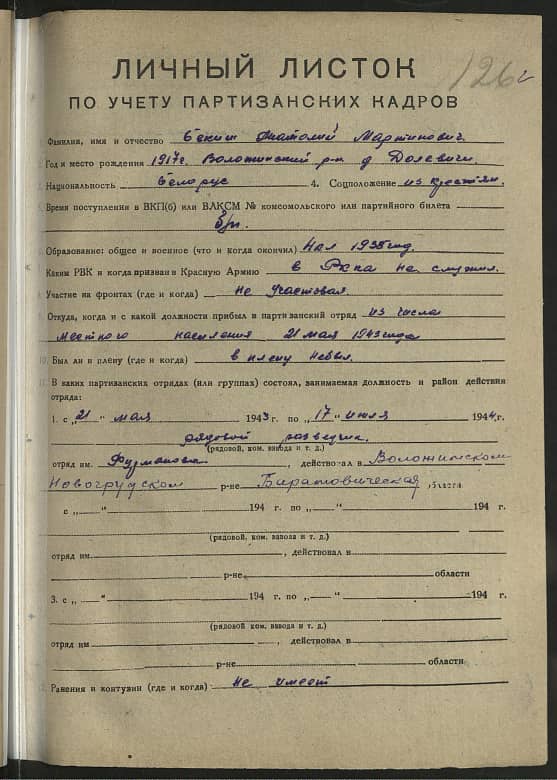 126
ЛИЧНЫЙ ЛИСТОК
ПО УЧЕТУ ПАРТИЗАНСКИХ КАДРОВ
Фамилия, имя и отчество Анатолий Мартинович.
Год и место рождения 1917г. Воложинский р-н д Долевичи.
Национальность белорус 4. Соцположение из крестьян.
Время поступления в ВКП(б) или ВЛКСМ № комсомольского или партийного билета
б/п.
Образование: общее и военное (что и когда окончил) 1935год
Каким РВК и когда призван в Красную Армию в РККА не служил.
Участие на фронтах (где и когда) не участовал.
Откуда, когда и с какой должности прибыл в партизанский отряд из числа
местного населения 21 мая 1943 года
10. Был ли в плену (где и когда) в плену небыл.
В каких партизанских отрядах (или группах) состоял, занимаемая должность и район действия
отряда:
1. с „21" мая 1943 г. по „17" июля 1944 г.
рядовой разведчик.
(рядовой, ком. взвода и т. д.)
отряд им. Фурманова, действовал в Воложинском
Новогрудском р-не Барановическая области
с „ " 194 г. по „ " 194 г.
(рядовой, ком. взвода и т. д.)
отряд им. , действовал в
р-не области
3. с „ " 194 г. по „ " 194 г.
(рядовой, ком. взвода и т. д.)
отряд им , действовал в
р-не области
Ранения и контузии (где и когда) не имеет